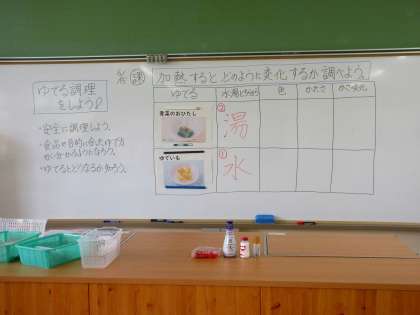 ゆでる調理
をしよう
・安全に調理しよう。
・食品や目的に合ったゆで方
が分かるようになろう。
・ゆでるとどうなるか知ろう。
課
加熱するとどのように変化するか調べよう。
ゆでる
水湯どちらから
色
かたさ
かさ・味
青菜のおひたし
②
湯
ゆでいも
①
水